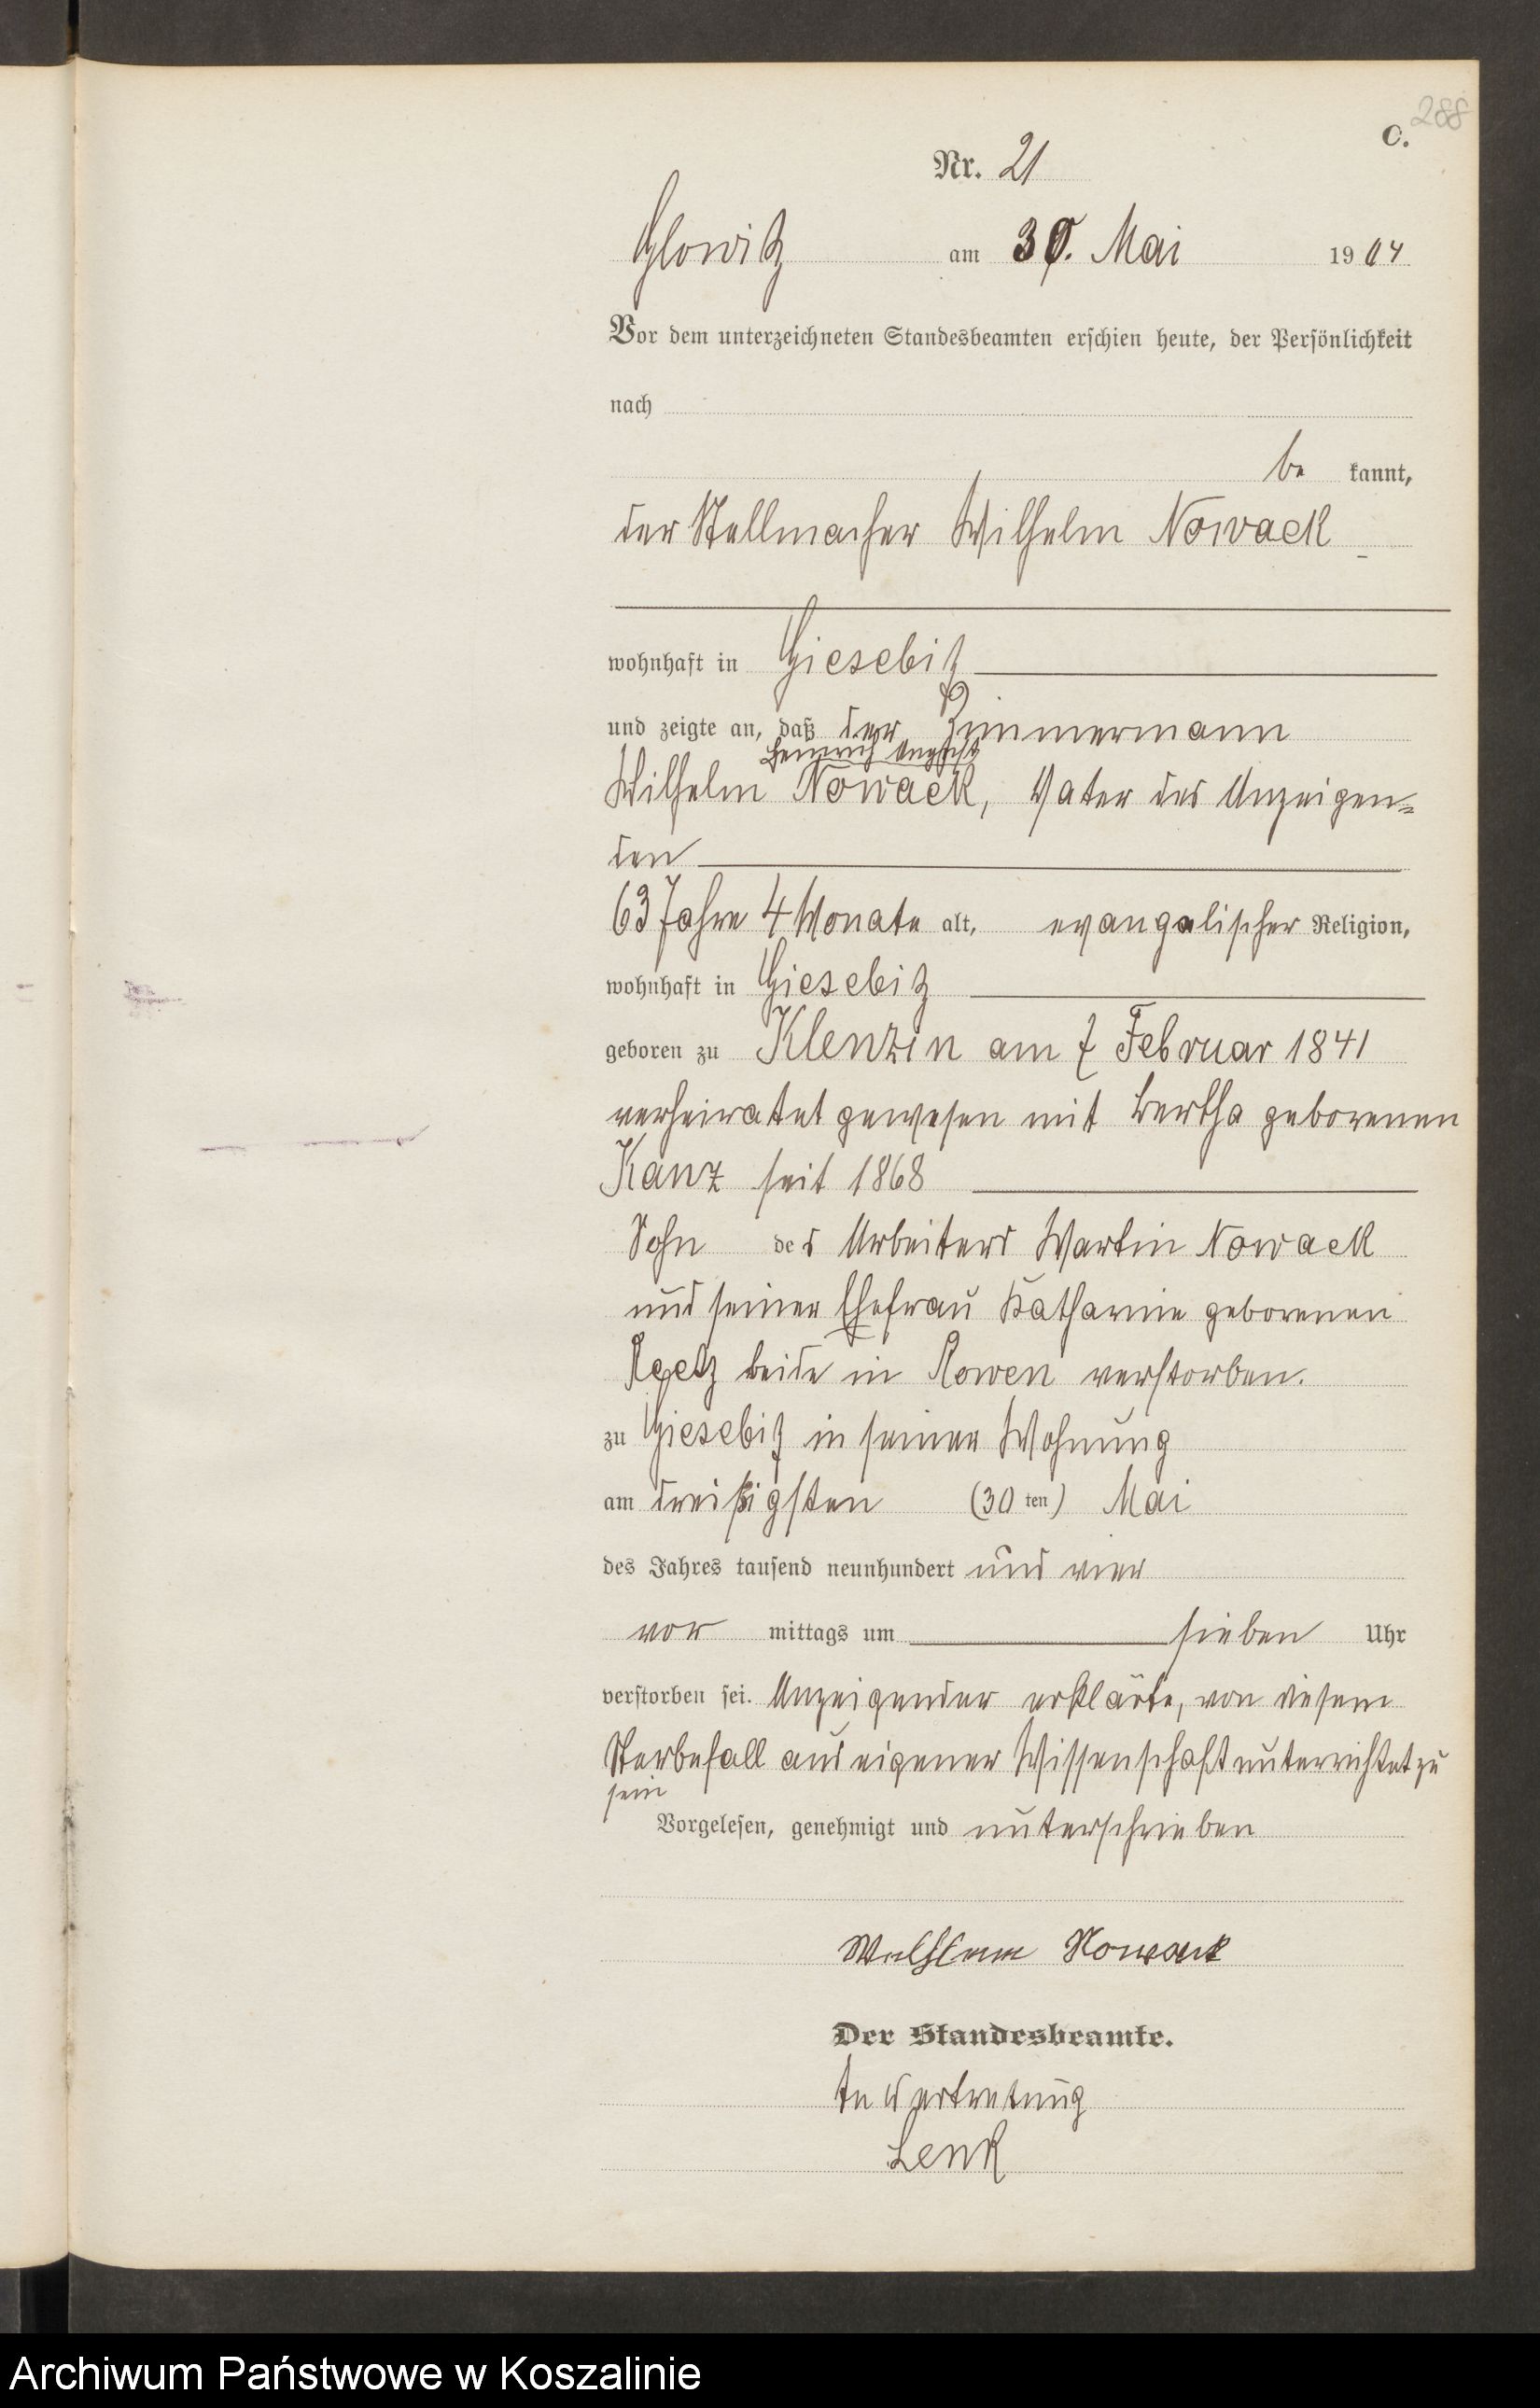 288
C.
Nr. 21
Glowitz am 30. Mai 1904
Vor dem unterzeichneten Standesbeamten erschien heute, der Persönlichkeit
nach
be kannt,
der Stellmacher Wilhelm Nowack
wohnhaft in Giesebitz
und zeigte an, daß der Zimmermann
Heinrich August
Wilhelm Nowack, Vater des Anzeigen=
den
63 Jahre 4 Monate alt, evangelischer Religion,
wohnhaft in Giesebitz
geboren zu Klenzin am 7 Februar 1841
verheiratet gewesen mit Bertha geborenen
Kanz seit 1868
Sohn des Arbeiters Martin Nowack
und seiner Ehefrau Katharine geborenen
beide in Rowen verstorben.
zu Giesebitz in seiner Wohnung
am dreißigsten (30 ten) Mai
des Jahres tausend neunhundert und vier
vor mittags um sieben Uhr
verstorben sei. Anzeigender erklärte, von diesem
Sterbefall aus eigener Wissenschaft unterrichtet zu
sein
Vorgelesen, genehmigt und unterschrieben
Wilhelm Nowack
Der Standesbeamte.
In Vertretung
Lenk
Archiwum Państwowe w Koszalinie